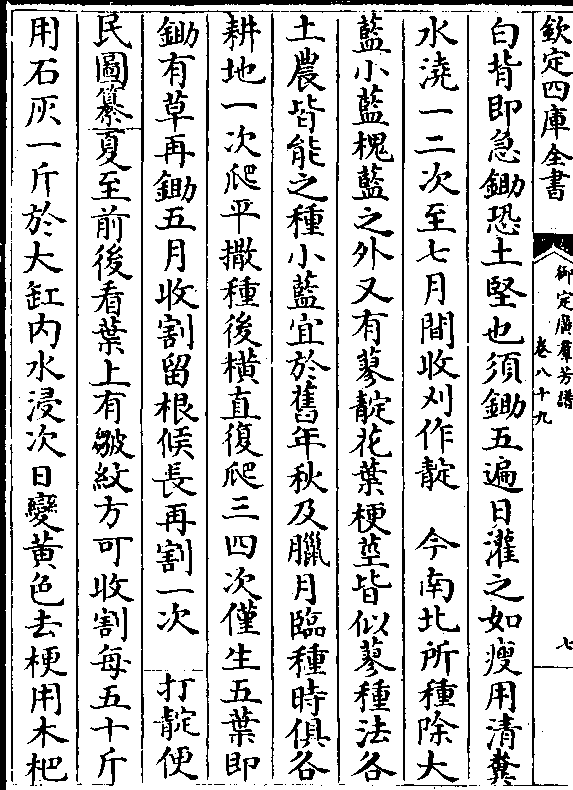 欽定四庫全書
御定廣羣芳譜
卷八十九
七
白背即急鋤恐土堅也須鋤五遍日灌之如瘦用清糞
水澆一二次至七月間收刈作靛　今南北所種除大
藍小藍槐藍之外又有蓼靛花葉梗莖皆似蓼種法各
土農皆能之種小藍宜於舊年秋及臘月臨種時俱各
耕地一次爬平撒種後橫直復爬三四次僅生五葉即
鋤有草再鋤五月收割留根候長再割一次　打靛便
民圖纂夏至前後看葉上有皺紋方可收割每五十斤
用石灰一斤於大缸內水浸次日變黃色去梗用木杷